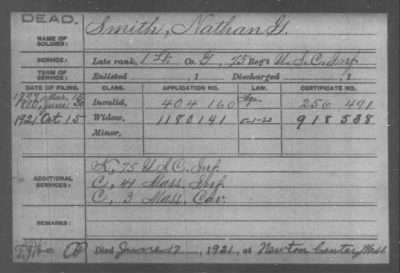 DEAD.
NAME OF SOLDIER: Smith, Nathan G.
SERVICE: Late rank, 1 Lt. Co. G, 75 Reg't U.S.C. Inf.
TERM OF SERVICE: Enlisted , 1 Discharged , 1
DATE OF FILING. CLASS. APPLICATION NO. LAW. CERTIFICATE NO.
1907 Mar. 15 Age.
1880, June 20 Invalid, 404 160 256 491
1921 Oct 15 Widow, 1180141 918 538
Minor,
K, 75 U.S.C. Inf.
ADDITIONAL SERVICES: C, 41 Mass. Inf.
C, 3 Mass. Cav.
REMARKS:
Died June 17, 1921, at Newton Center, Mass.